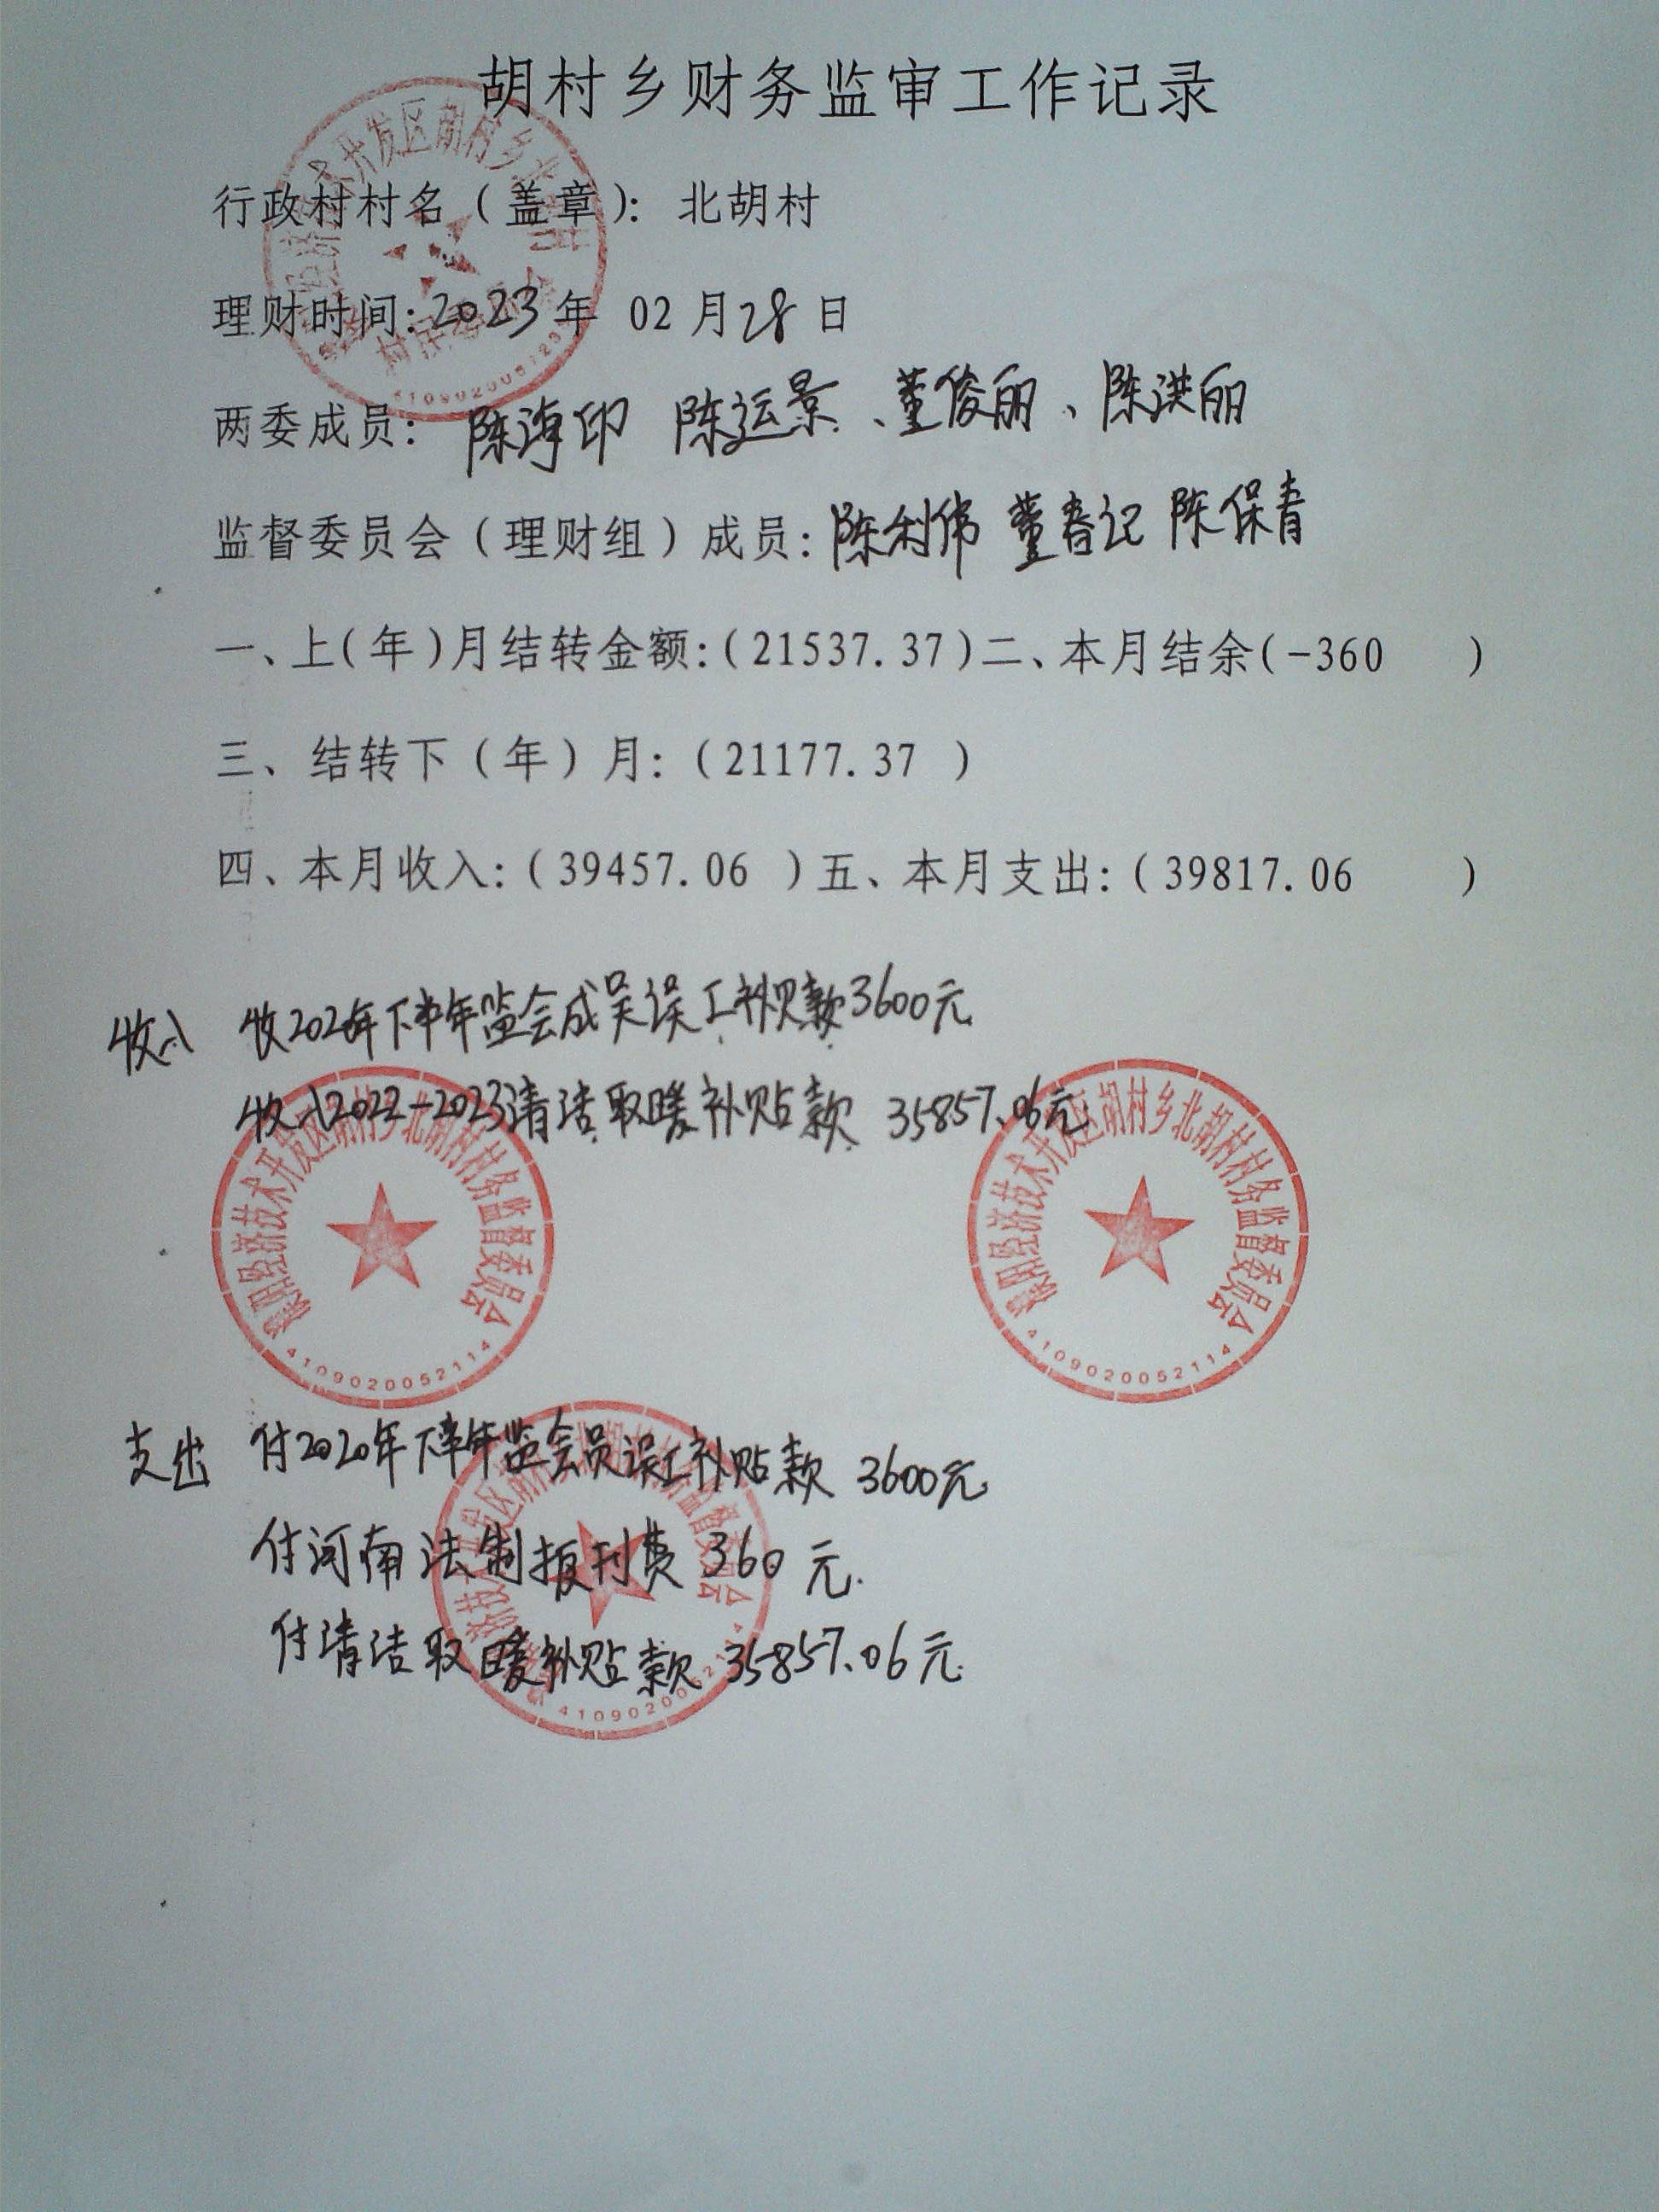 胡村乡财务监审工作记录
行政村村名（盖章）：北胡村
理财时间：2023年 02月28日
两委成员：陈海印 陈运景、董俊丽、陈洪丽
监督委员会（理财组）成员：陈利伟 董春记 陈保青
一、上(年)月结转金额：(21537.37)二、本月结余(-360 )
三、结转下（年）月：（21177.37 ）
四、本月收入：(39457.06 )五、本月支出：(39817.06 )
收入 收2020年下半年监会成员误工补贴款3600元
收入2022-2023清洁取暖补贴款 35857.06元
濮阳经济技术开发区胡村乡北胡村村务监督委员会
4109020052114
濮阳经济技术开发区胡村乡北胡村村务监督委员会
4109020052114
支出 付2020年下半年监会员误工补贴款 3600元
付河南法制报刊费 360元.
付清洁取暖补贴款 35857.06元.